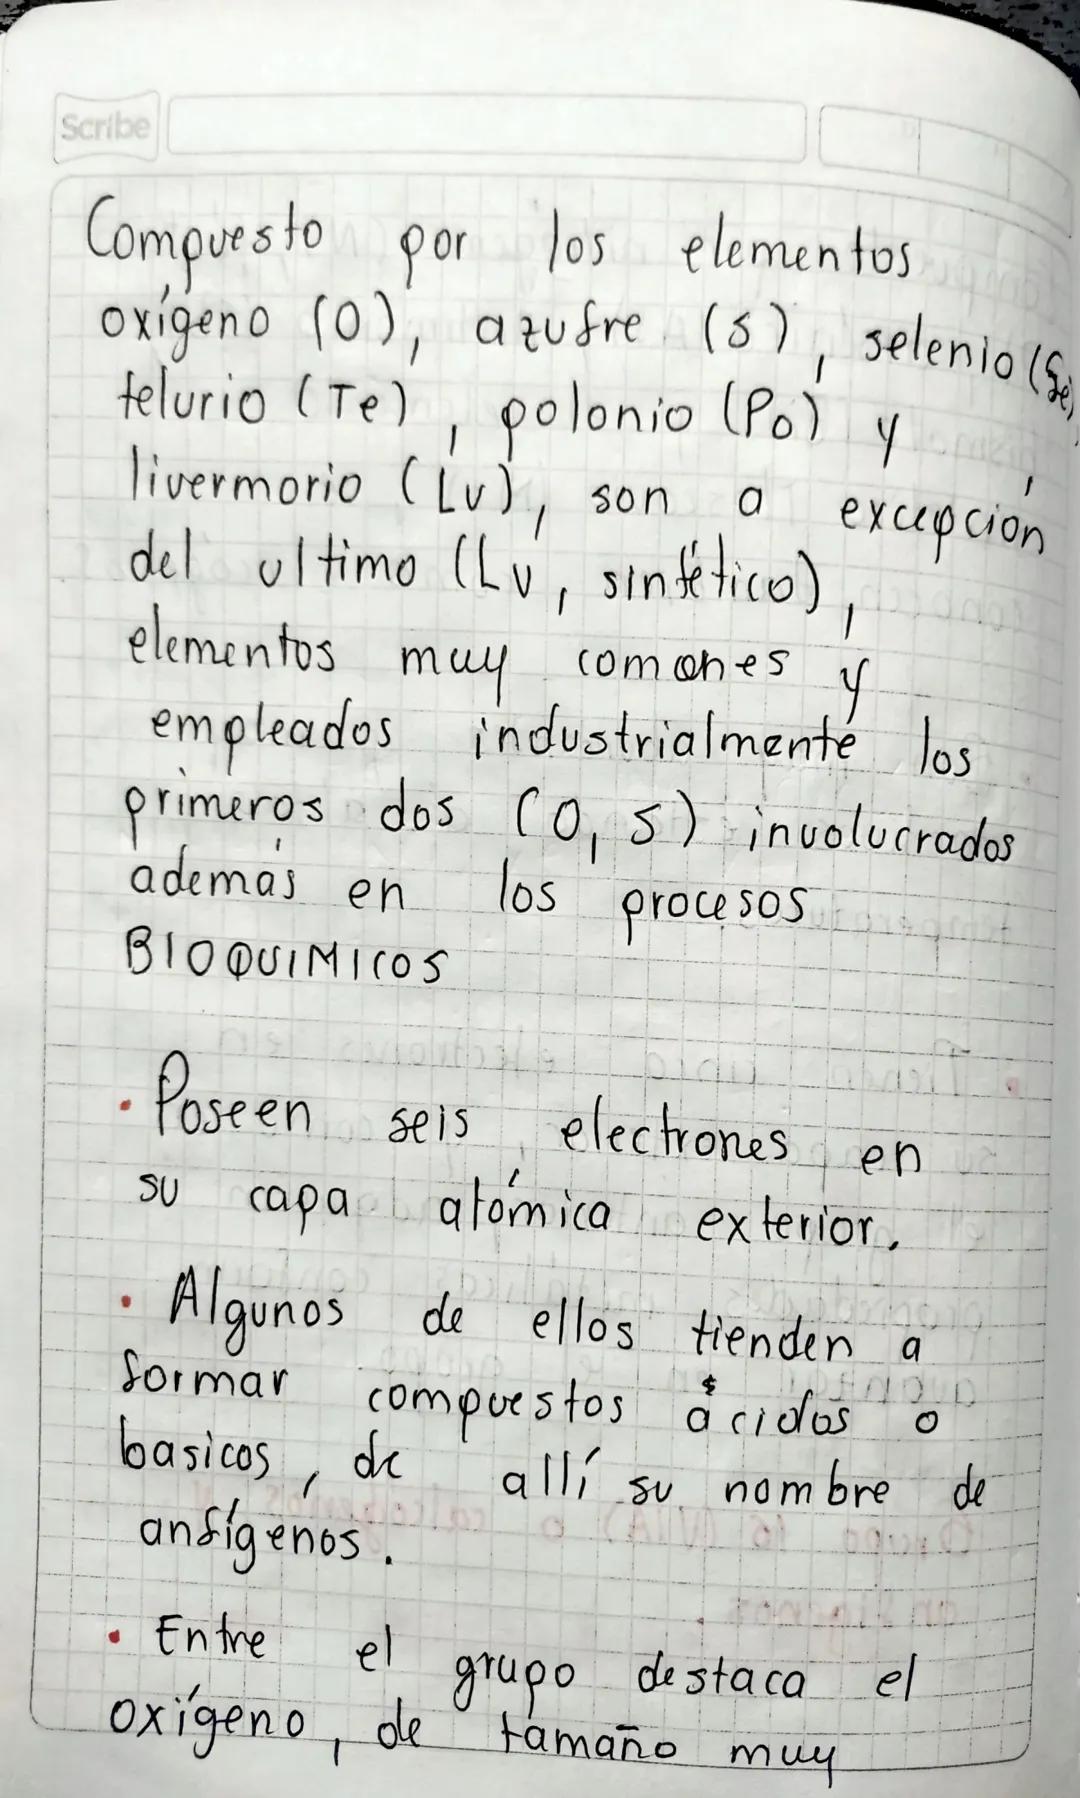 Scribe
Compuesto por los elementos
oxígeno (O), azufre (S), selenio (Se),
telurio (Te), polonio (Po) y
livermorio (Lv), son a excepción
del ultimo (Lv, sintético),
elementos muy comunes y
empleados industrialmente los
primeros dos (O, S) involucrados
además en los procesos
BIOQUIMICOS
• Poseen seis electrones en
su capa atómica exterior.
• Algunos de ellos tienden a
formar compuestos ácidos o
basicos, de allí su nombre de
anfígenos.
• Entre el grupo destaca el
oxígeno, de tamaño muy